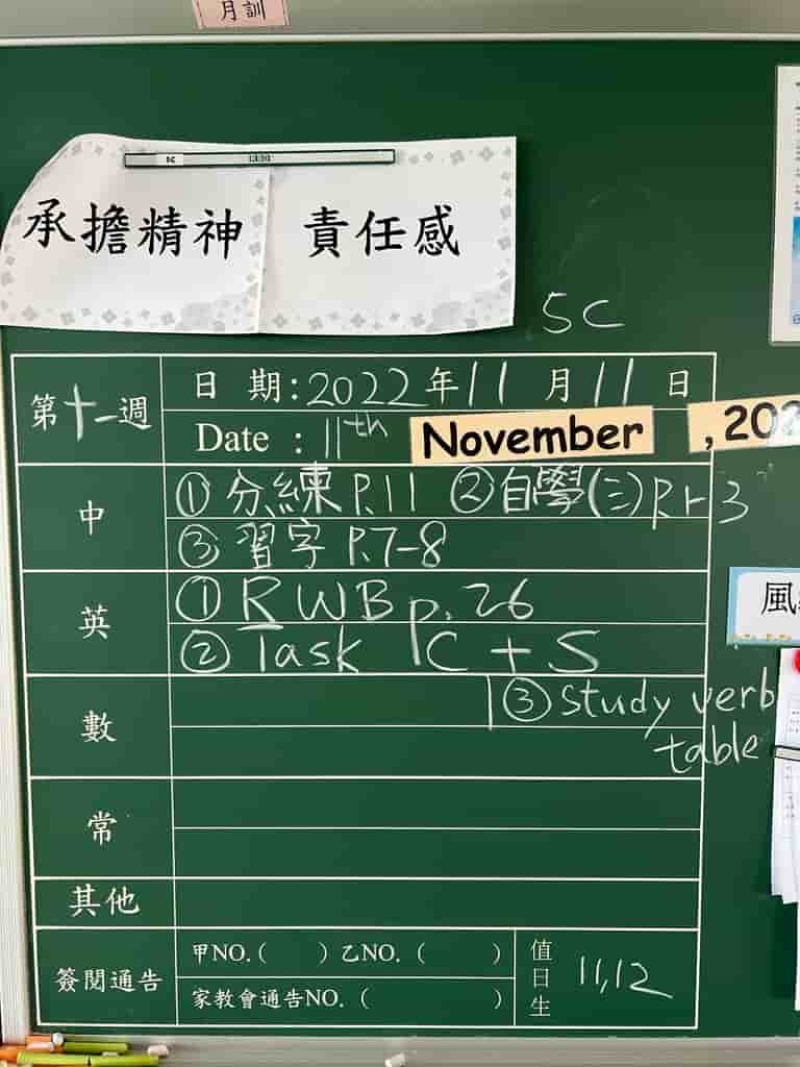 月訓
承擔精神 責任感
5C
第十一週 日 期:2022年11月11日
Date : 11th November , 202
中 ①分練 P.11 ②自學(三)P.1-3
③習字 P.7-8
英 ① RWB p. 26
② Task 1C + S
數 ③ study verb
table
常
其他
簽閱通告 甲NO.( ) 乙NO. ( ) 值日生 11,12
家教會通告NO. ( )
風